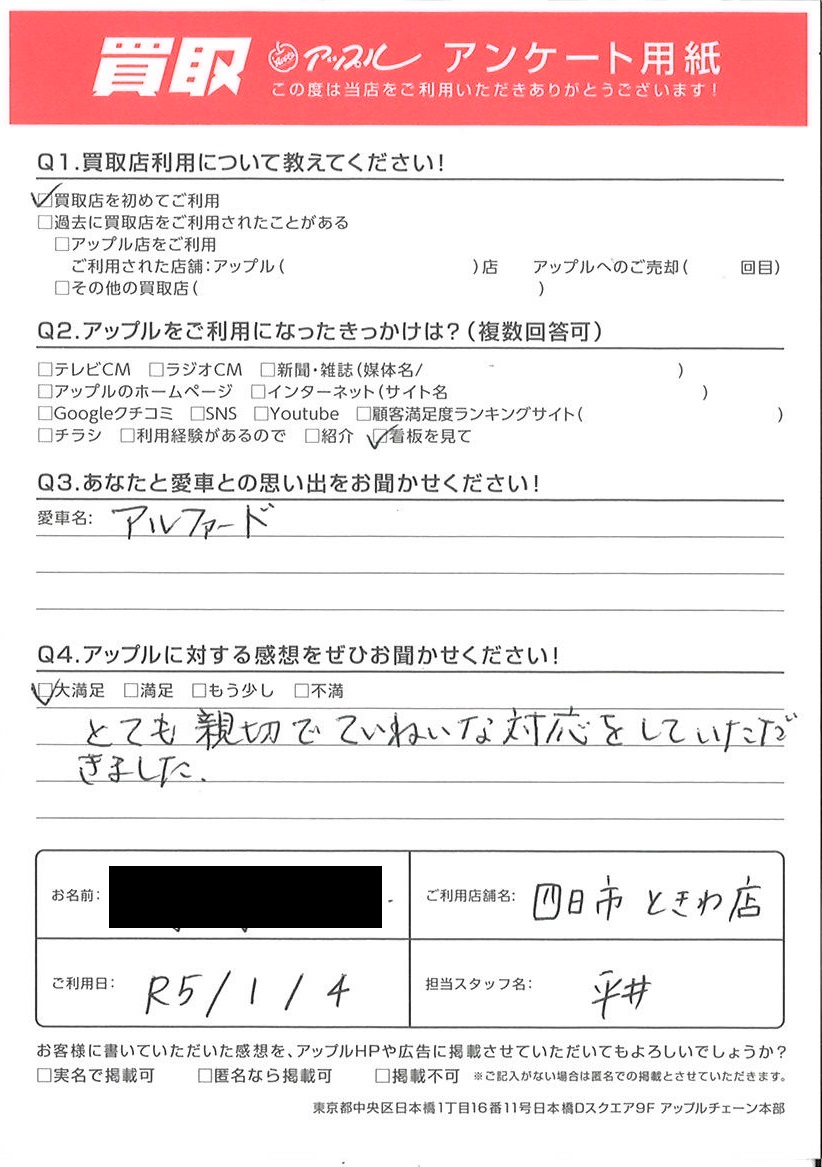 買取 アップル アンケート用紙
この度は当店をご利用いただきありがとうございます!
Q1.買取店利用について教えてください!
☑買取店を初めてご利用
□過去に買取店をご利用されたことがある
□アップル店をご利用
ご利用された店舗:アップル( )店 アップルへのご売却( 回目)
□その他の買取店( )
Q2.アップルをご利用になったきっかけは?(複数回答可)
□テレビCM □ラジオCM □新聞・雑誌(媒体名/ )
□アップルのホームページ □インターネット(サイト名 )
□Googleクチコミ □SNS □Youtube □顧客満足度ランキングサイト( )
□チラシ □利用経験があるので □紹介 ☑看板を見て
Q3.あなたと愛車との思い出をお聞かせください!
愛車名: アルファード
Q4.アップルに対する感想をぜひお聞かせください!
☑大満足 □満足 □もう少し □不満
とても親切でていねいな対応をしていただ
きました.
お名前: ご利用店舗名: 四日市ときわ店
ご利用日: R5/1/4 担当スタッフ名: 平井
お客様に書いていただいた感想を、アップルHPや広告に掲載させていただいてもよろしいでしょうか?
□実名で掲載可 □匿名なら掲載可 □掲載不可 ※ご記入がない場合は匿名での掲載とさせていただきます。
東京都中央区日本橋1丁目16番11号日本橋Dスクエア9F アップルチェーン本部